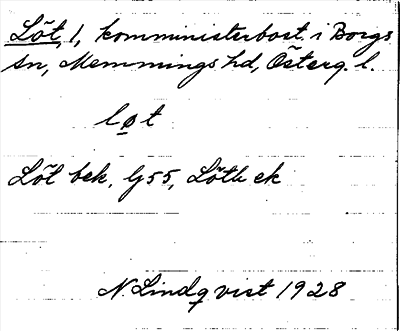 Löt, 1, komministerbost. i Borgs
sn, Memmings hd, Österg. l.
løt
Löt bek, G55, Löth ek
N. Lindqvist 1928